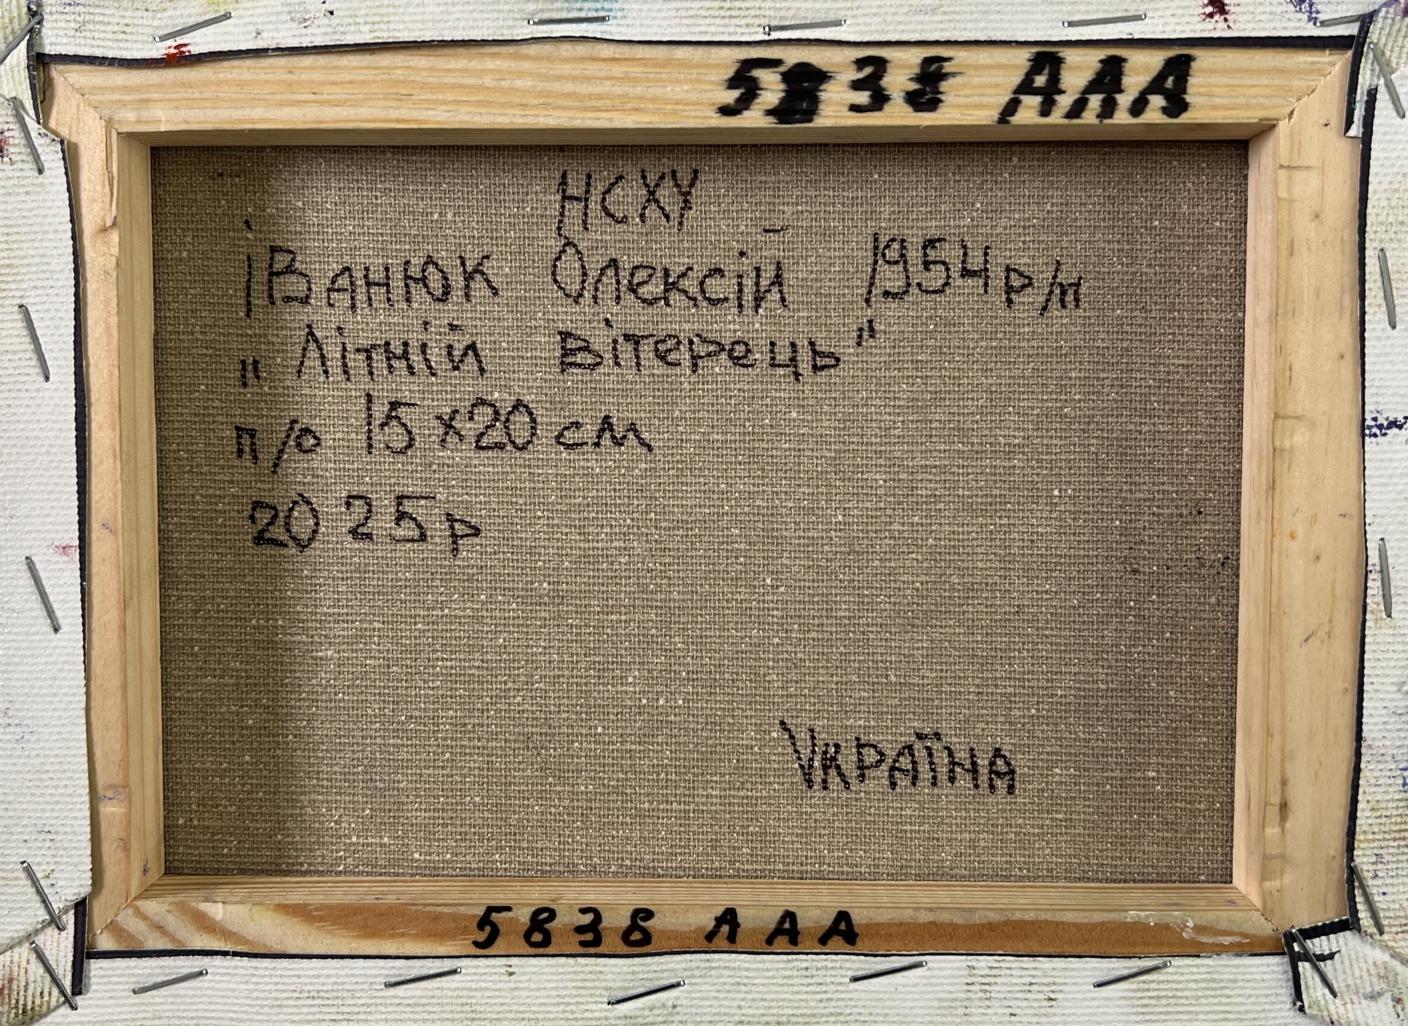 5838 ААА
НСХУ
іВанюк Олексій 1954 р/н
„Літній вітерець"
п/о 15x20 см
2025 р
Україна
5838 ААА